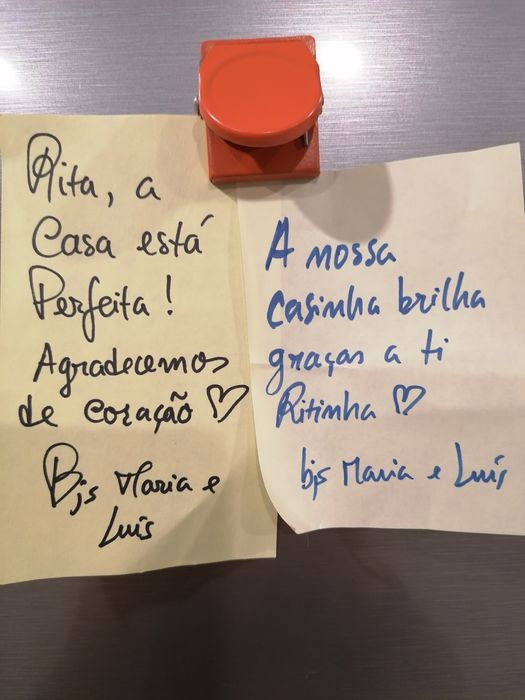 Rita, a
Casa está
Perfeita!
Agradecemos
de coração ♡
Bjs Maria e
Luís
A nossa
casinha brilha
graças a ti
Ritinha ♡
bjs Maria e Luís